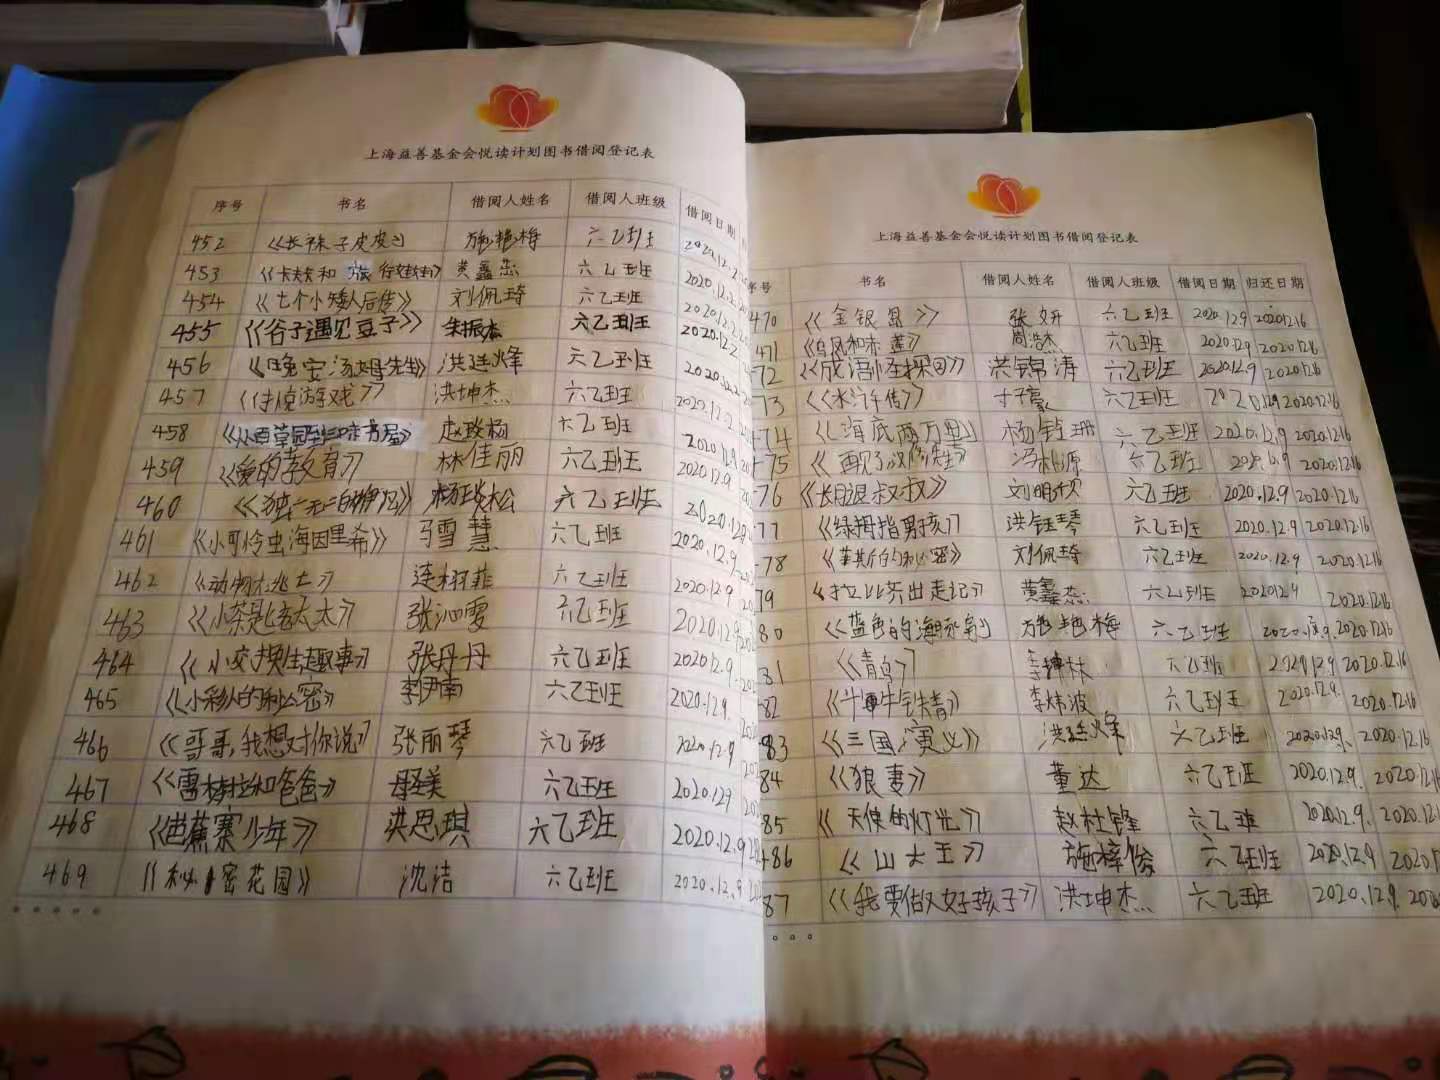 上海益善基金会悦读计划图书借阅登记表
序号 书名 借阅人姓名 借阅人班级 借阅日期
452 《长袜子皮皮》 施艳梅 六乙班 2020.12.2
453 《卡夫卡和旅行娃娃》 黄鑫 六乙班 2020.12.2
454 《七个小矮人后传》 刘佩琦 六乙班 2020.12.2
455 《谷子遇见豆子》 朱振杰 六乙班 2020.12.2
456 《晚安汤姆先生》 洪廷烽 六乙班 2020.12.2
457 游戏》 洪坤杰 六乙班 2020.12.2
458 《从百草园到三味书屋》 赵 六乙班 2020.12.9
459 《爱的教育》 林佳丽 六乙班 2020.12.9
460 《独一无二的伊凡》 杨 六乙班 2020.12.9
461 《小可怜虫海因里希》 马雪慧 六乙班 2020.12.9
462 《动物大逃亡》 连 菲 六乙班 2020.12.9
463 《小茶匙老太太》 张沁雯 六乙班 2020.12.9
464 《小 趣事》 张丹丹 六乙班 2020.12.9
465 《小 人的秘密》 李伊南 六乙班 2020.12.9
466 《哥哥,我想对你说》 张丽琴 六乙班 2020.12.9
467 《雷梦拉和爸爸》 美 六乙班 2020.12.9
468 《芭蕉寨少年》 洪思琪 六乙班 2020.12.9
469 《秘密花园》 沈洁 六乙班 2020.12.9
上海益善基金会悦读计划图书借阅登记表
序号 书名 借阅人姓名 借阅人班级 借阅日期 归还日期
470 《金银岛》 张妍 六乙班 2020.12.9 2020.12.16
471 《乌凤和赤莲》 周浩杰 六乙班 2020.12.9 2020.12.16
72 《成语怪探 》 洪锦涛 六乙班 2020.12.9 2020.12.16
73 《水浒传》 豪 六乙班 2020.12.9 2020.12.16
74 《海底两万里》 杨 六乙班 2020.12.9 2020.12.16
75 《再见了, 先生》 冯桃源 六乙班 2020.12.9 2020.12.16
76 《长腿叔叔》 刘明欣 六乙班 2020.12.9 2020.12.16
77 《绿拇指男孩》 洪钰琴 六乙班 2020.12.9 2020.12.16
78 的秘密》 刘佩琦 六乙班 2020.12.9 2020.12.16
79 《拉比齐出走记》 黄鑫 六乙班 2020.12.9 2020.12.16
80 《蓝色的海豚岛》 施艳梅 六乙班 2020.12.9 2020.12.16
81 《青鸟》 李坤林 六乙班 2020.12.9 2020.12.16
82 《斗牛 》 李炜波 六乙班 2020.12.9. 2020.12.16
83 《三国演义》 洪廷烽 六乙班 2020.12.9. 2020.12.16
84 《狼妻》 董达 六乙班 2020.12.9. 2020.12.16
85 《天使的灯光》 赵杜锋 六乙班 2020.12.9. 2020.12.1
486 《山大王》 施梓俊 六乙班 2020.12.9
87 《我要做好孩子》 洪坤杰 六乙班 2020.12.9.